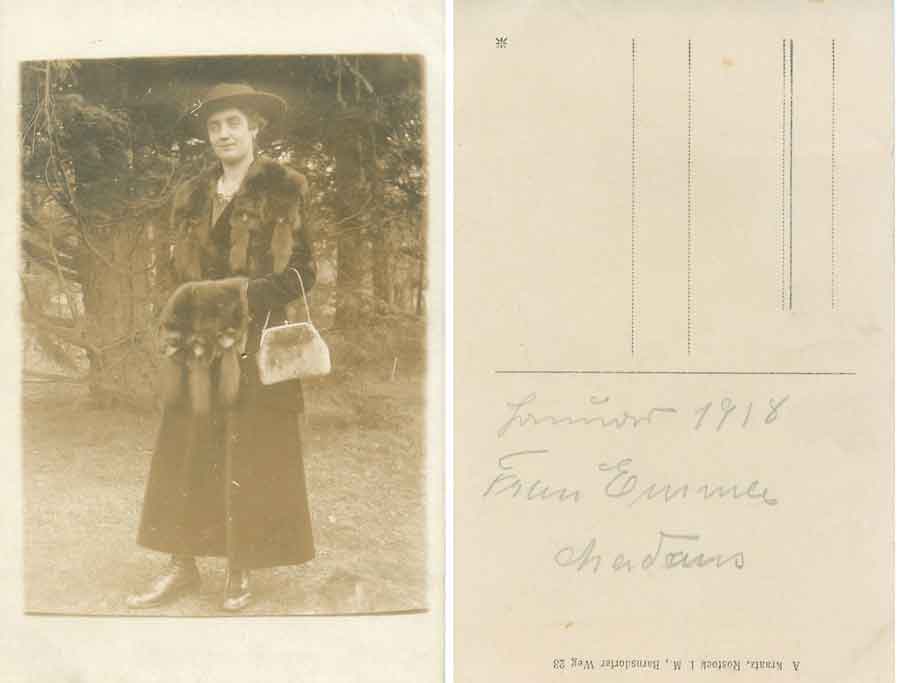 Januar 1918
Frau Emma
Madaus
A Kraatz, Rostock i M., Barnsdorfer Weg 23